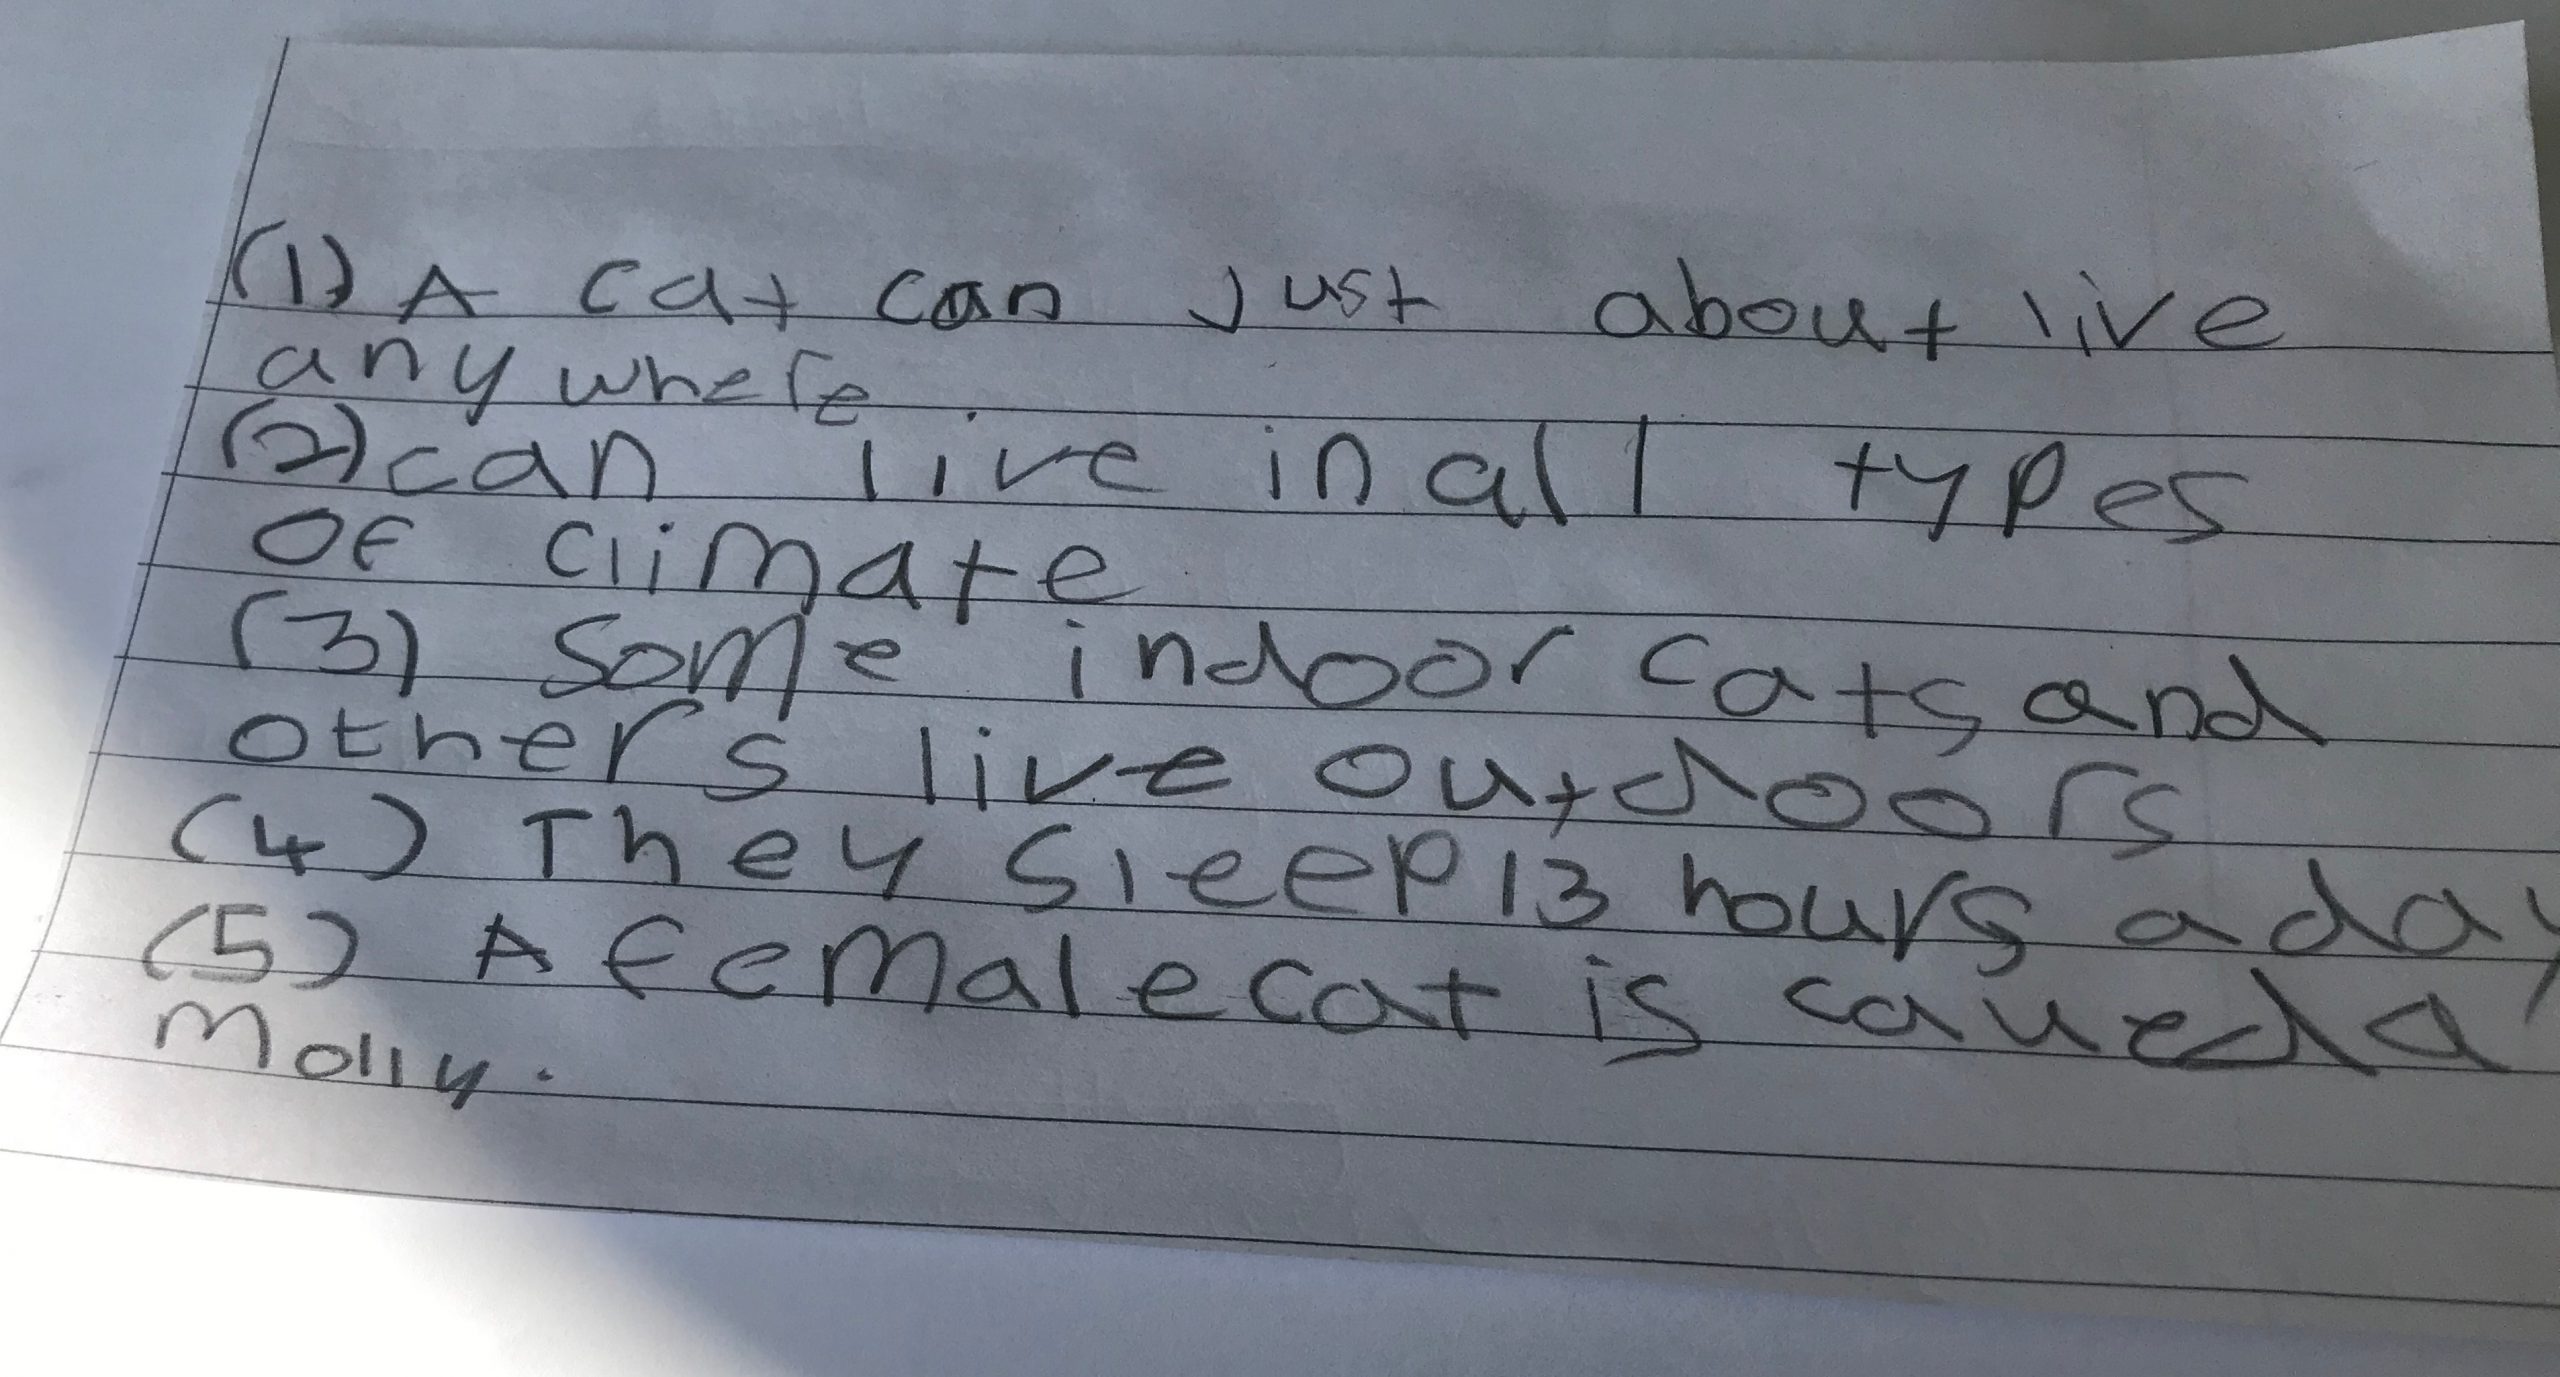 (1) A cat can just about live
any where
(2) can live in all types
of climate
(3) Some indoor cats and
others live outdoors
(4) They sleep 13 hours a day
(5) A female cat is caued a
Molly.